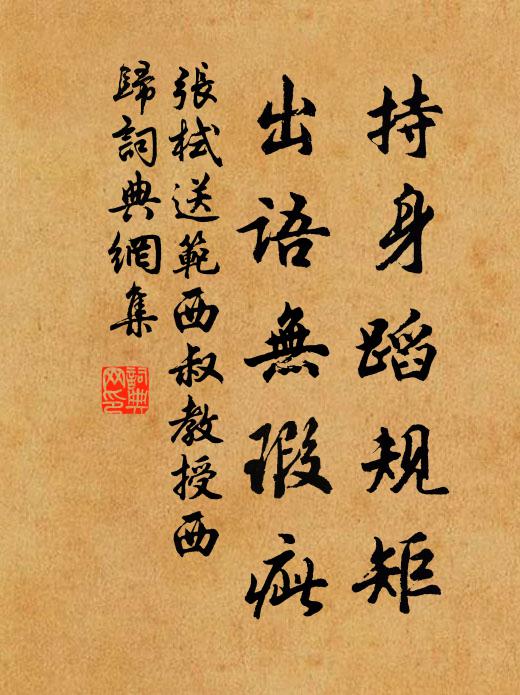 持身蹈規矩
出語無瑕疵
張栻送範西叔教授西
歸詞典網集
詞典
网印